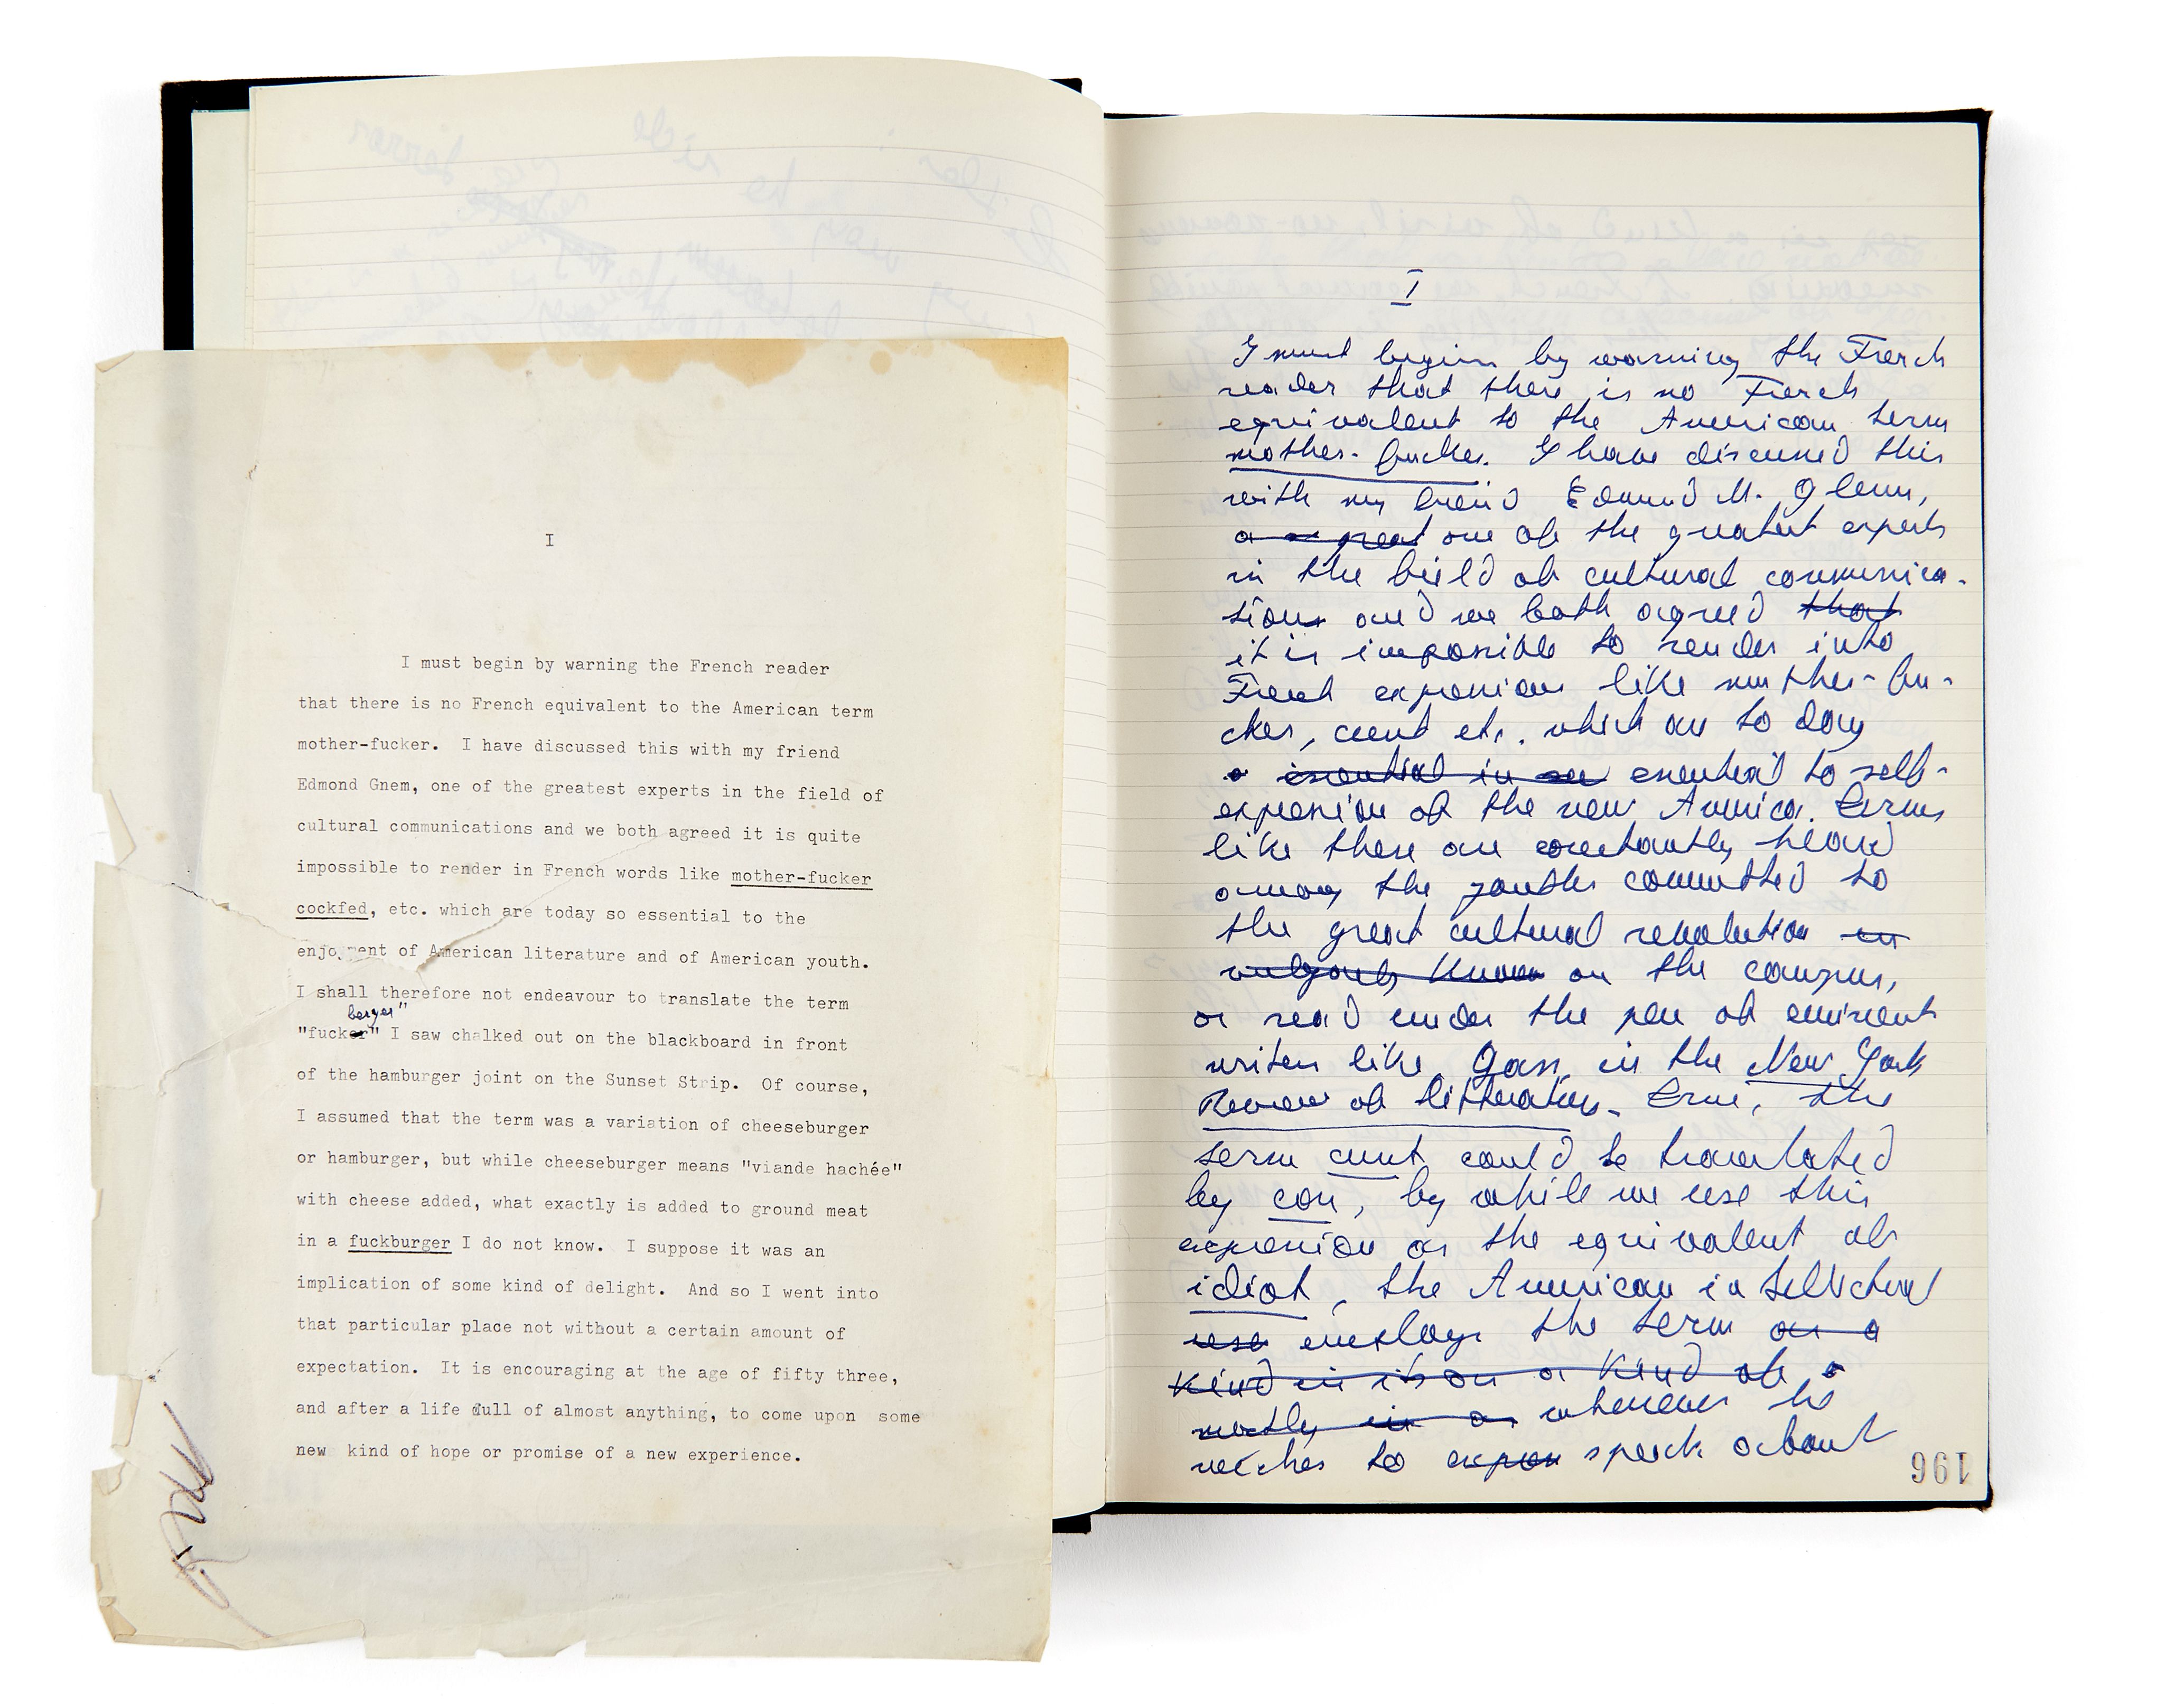 I
I must begin by warning the French reader
that there is no French equivalent to the American term
mother-fucker. I have discussed this with my friend
Edmond Gnem, one of the greatest experts in the field of
cultural communications and we both agreed it is quite
impossible to render in French words like mother-fucker
cockfed, etc. which are today so essential to the
enjoyment of American literature and of American youth.
I shall therefore not endeavour to translate the term
berger"
"fucker" I saw chalked out on the blackboard in front
of the hamburger joint on the Sunset Strip. Of course,
I assumed that the term was a variation of cheeseburger
or hamburger, but while cheeseburger means "viande hachée"
with cheese added, what exactly is added to ground meat
in a fuckburger I do not know. I suppose it was an
implication of some kind of delight. And so I went into
that particular place not without a certain amount of
expectation. It is encouraging at the age of fifty three,
and after a life full of almost anything, to come upon some
new kind of hope or promise of a new experience.
I
I must begin by warning the French
reader that there is no French
equivalent to the American term
mother-fucker. I have discussed this
with my friend Edmund M. Glenn,
a great one of the greatest experts
in the field of cultural communica-
tions and we both agreed that
it is impossible to render into
French expressions like mother-fu-
cker, cunt etc. which are to day
essential in essential to self-
expression of the new America. Terms
like these are constantly heard
among the youths committed to
the great cultural revolution in
on the campus,
or read under the pen of eminent
writers like Gass, in the New York
Review of litterature. True, the
term cunt could be translated
by con, by while we use this
expression as the equivalent of
idiot, the American intellectual
use employs the term as a
kind in its on a kind of a
mostly in a whenever he
wishes to speak about
196